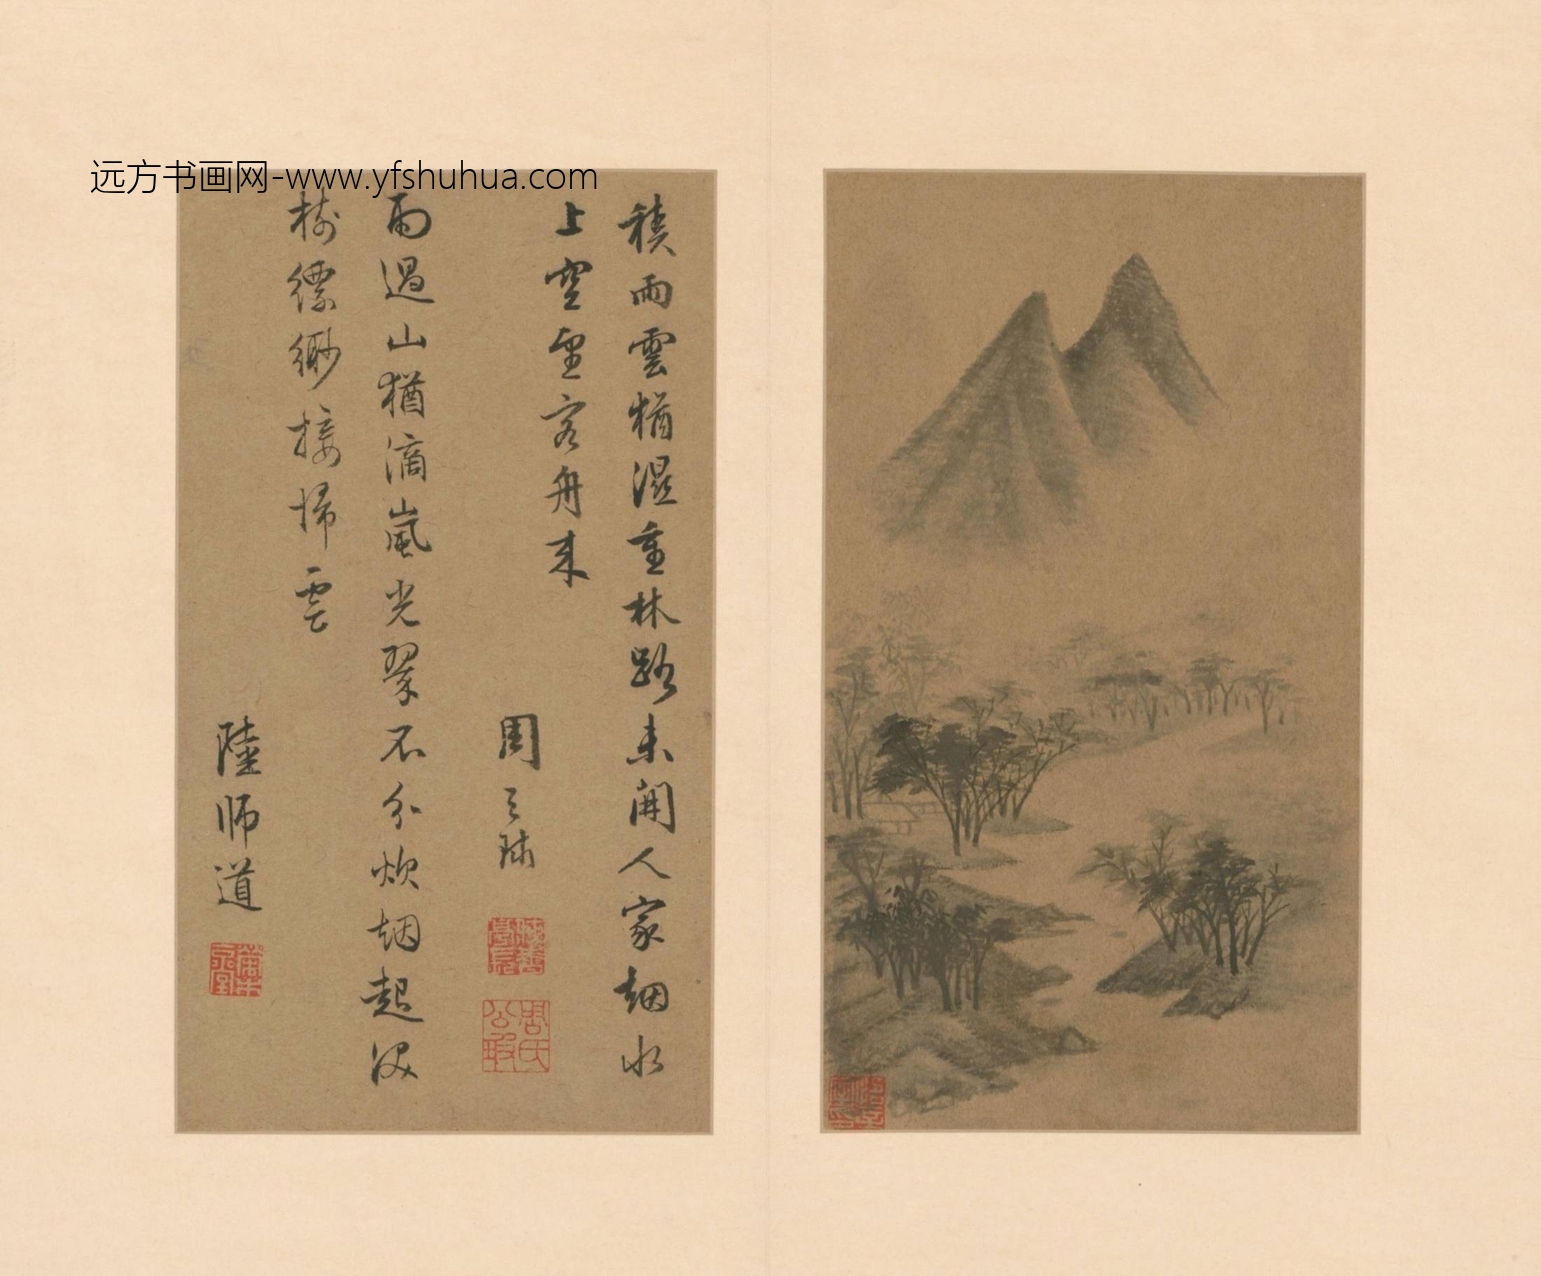 远方书画网-www.yfshuhua.com
積雨雲猶濕重林路未開人家烟水
上空望客舟来
周天球
周氏公瑕
雨過山猶滴嵐光翠不分炊烟起深
樹縹緲接歸雲
陸師道